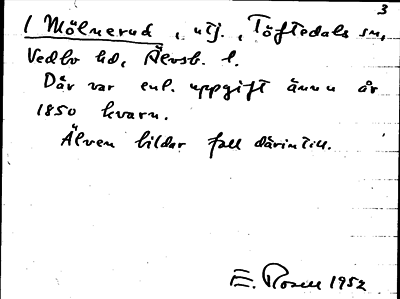 3
( Mölnerud , utj. , Töftedals sn,
Vedbo hd, Älvsb. l.
Där var enl. uppgift ännu år
1850 kvarn.
Älven bildar fall därintill.
E. Rosell 1952